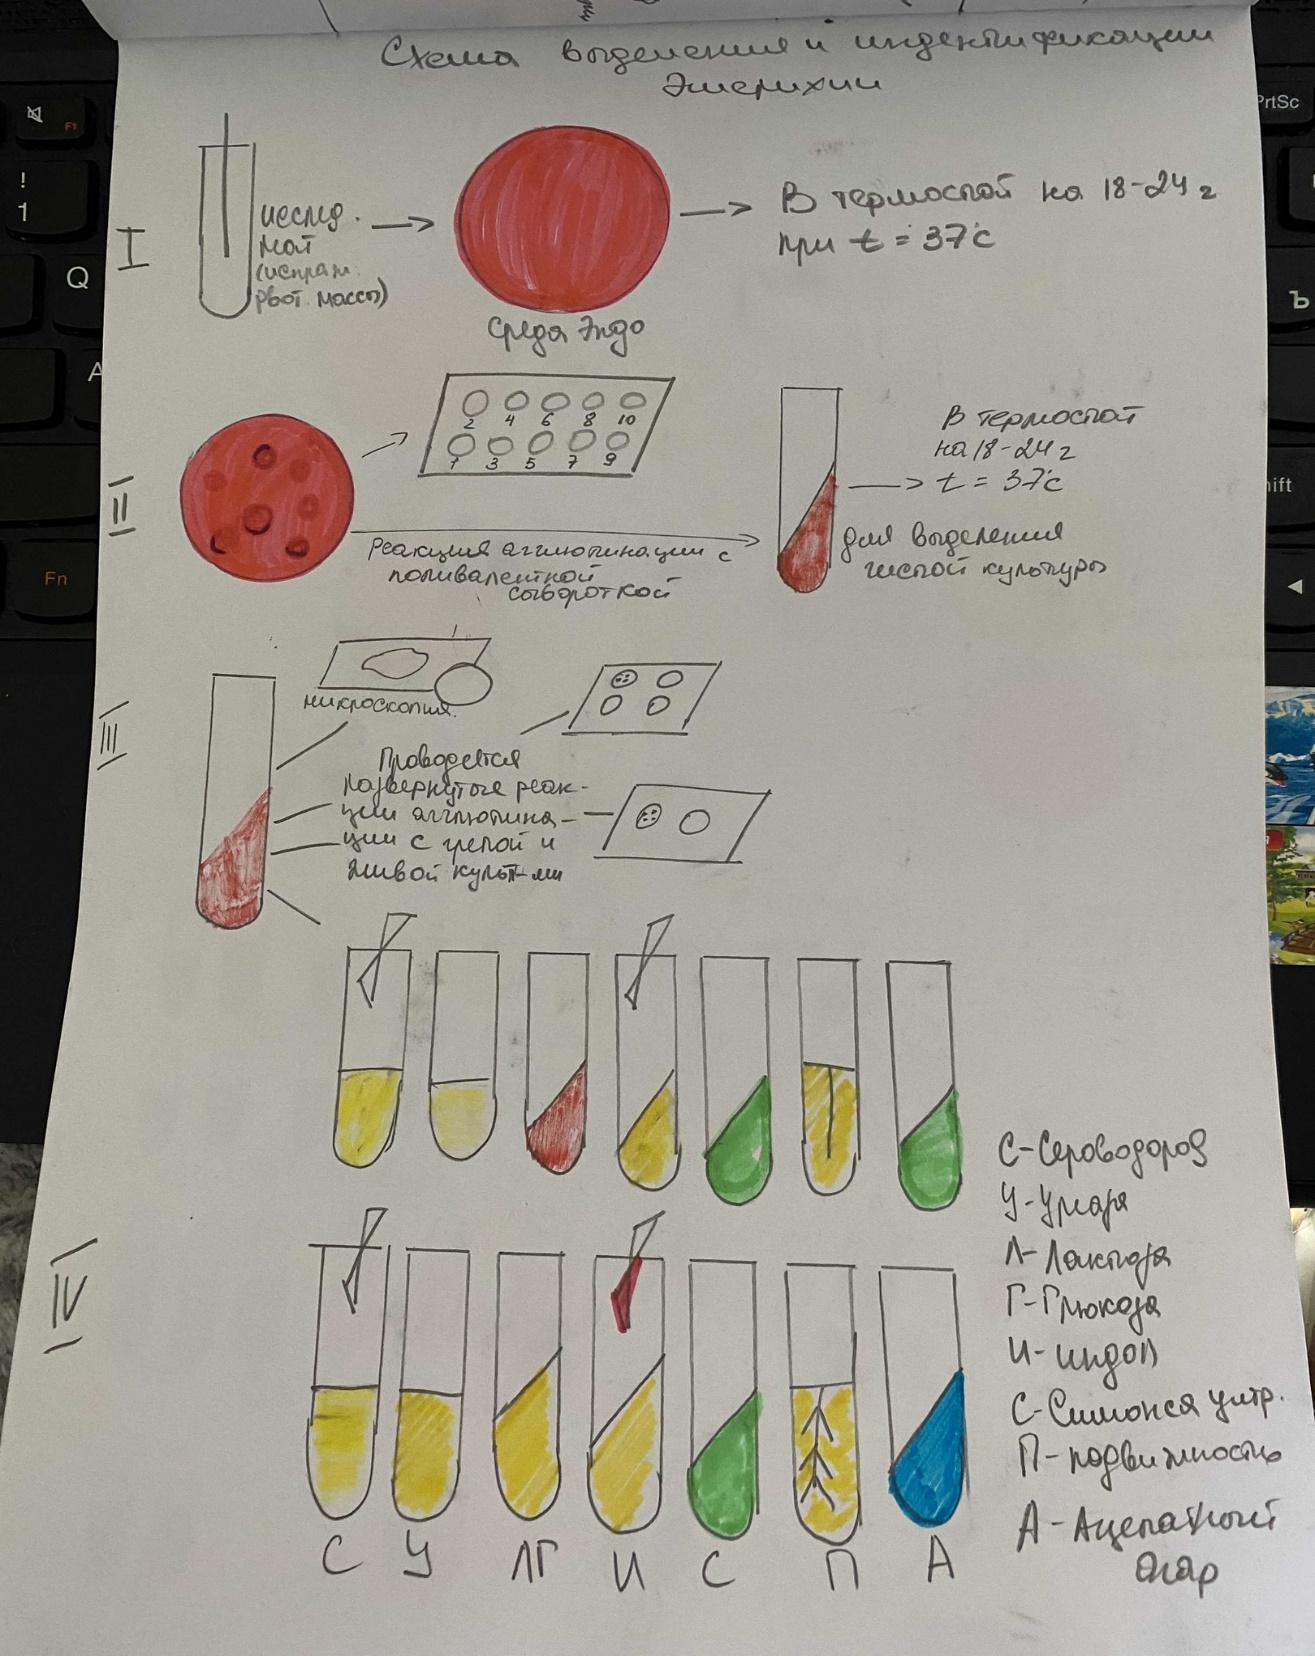 Схема выделения и индентификации
Эшерихии
I
исслед.
мат
(испраж.
рвот. массы)
Среда Эндо
В термостат на 18-24 г
при t = 37°c
II
2 4 6 8 10
1 3 5 7 9
Реакция агглютинации с
поливалентной
сывороткой
В термостат
на 18-24 г
t = 37°c
для выделения
чистой культуры
III
микроскопия.
Проводется
развернутые реак-
ции агглютина-
ции с гретой и
живой культ-ми
IV
С У ЛГ И С П А
С-Сероводород
У-Уреаза
Л-Лактоза
Г-Глюкоза
И-индол
С-Симонса цитр.
П-подвижность
А-Ацетатный
Агар
! 
1
Q
A
Fn
F1
PrtSc
Ъ